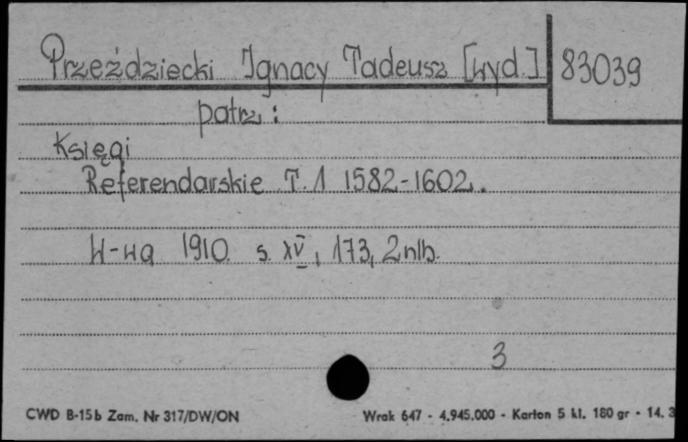 Przeździecki Ignacy Tadeusz [wyd.] 83039
patrz:
Księgi
Referendarskie T.1 1582-1602.
W-wa 1910. s. XV, 173, 2 nlb.
3
CWD B-15b Zam. Nr 317/DW/ON Wrak 647 - 4.945.000 - Karton 5 kl. 180 gr - 14. 3